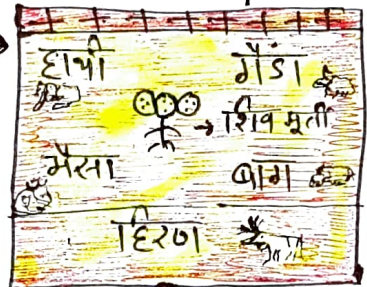 हाथी गैंडा
→ शिव मूर्ती
भैसा बाग
हिरण